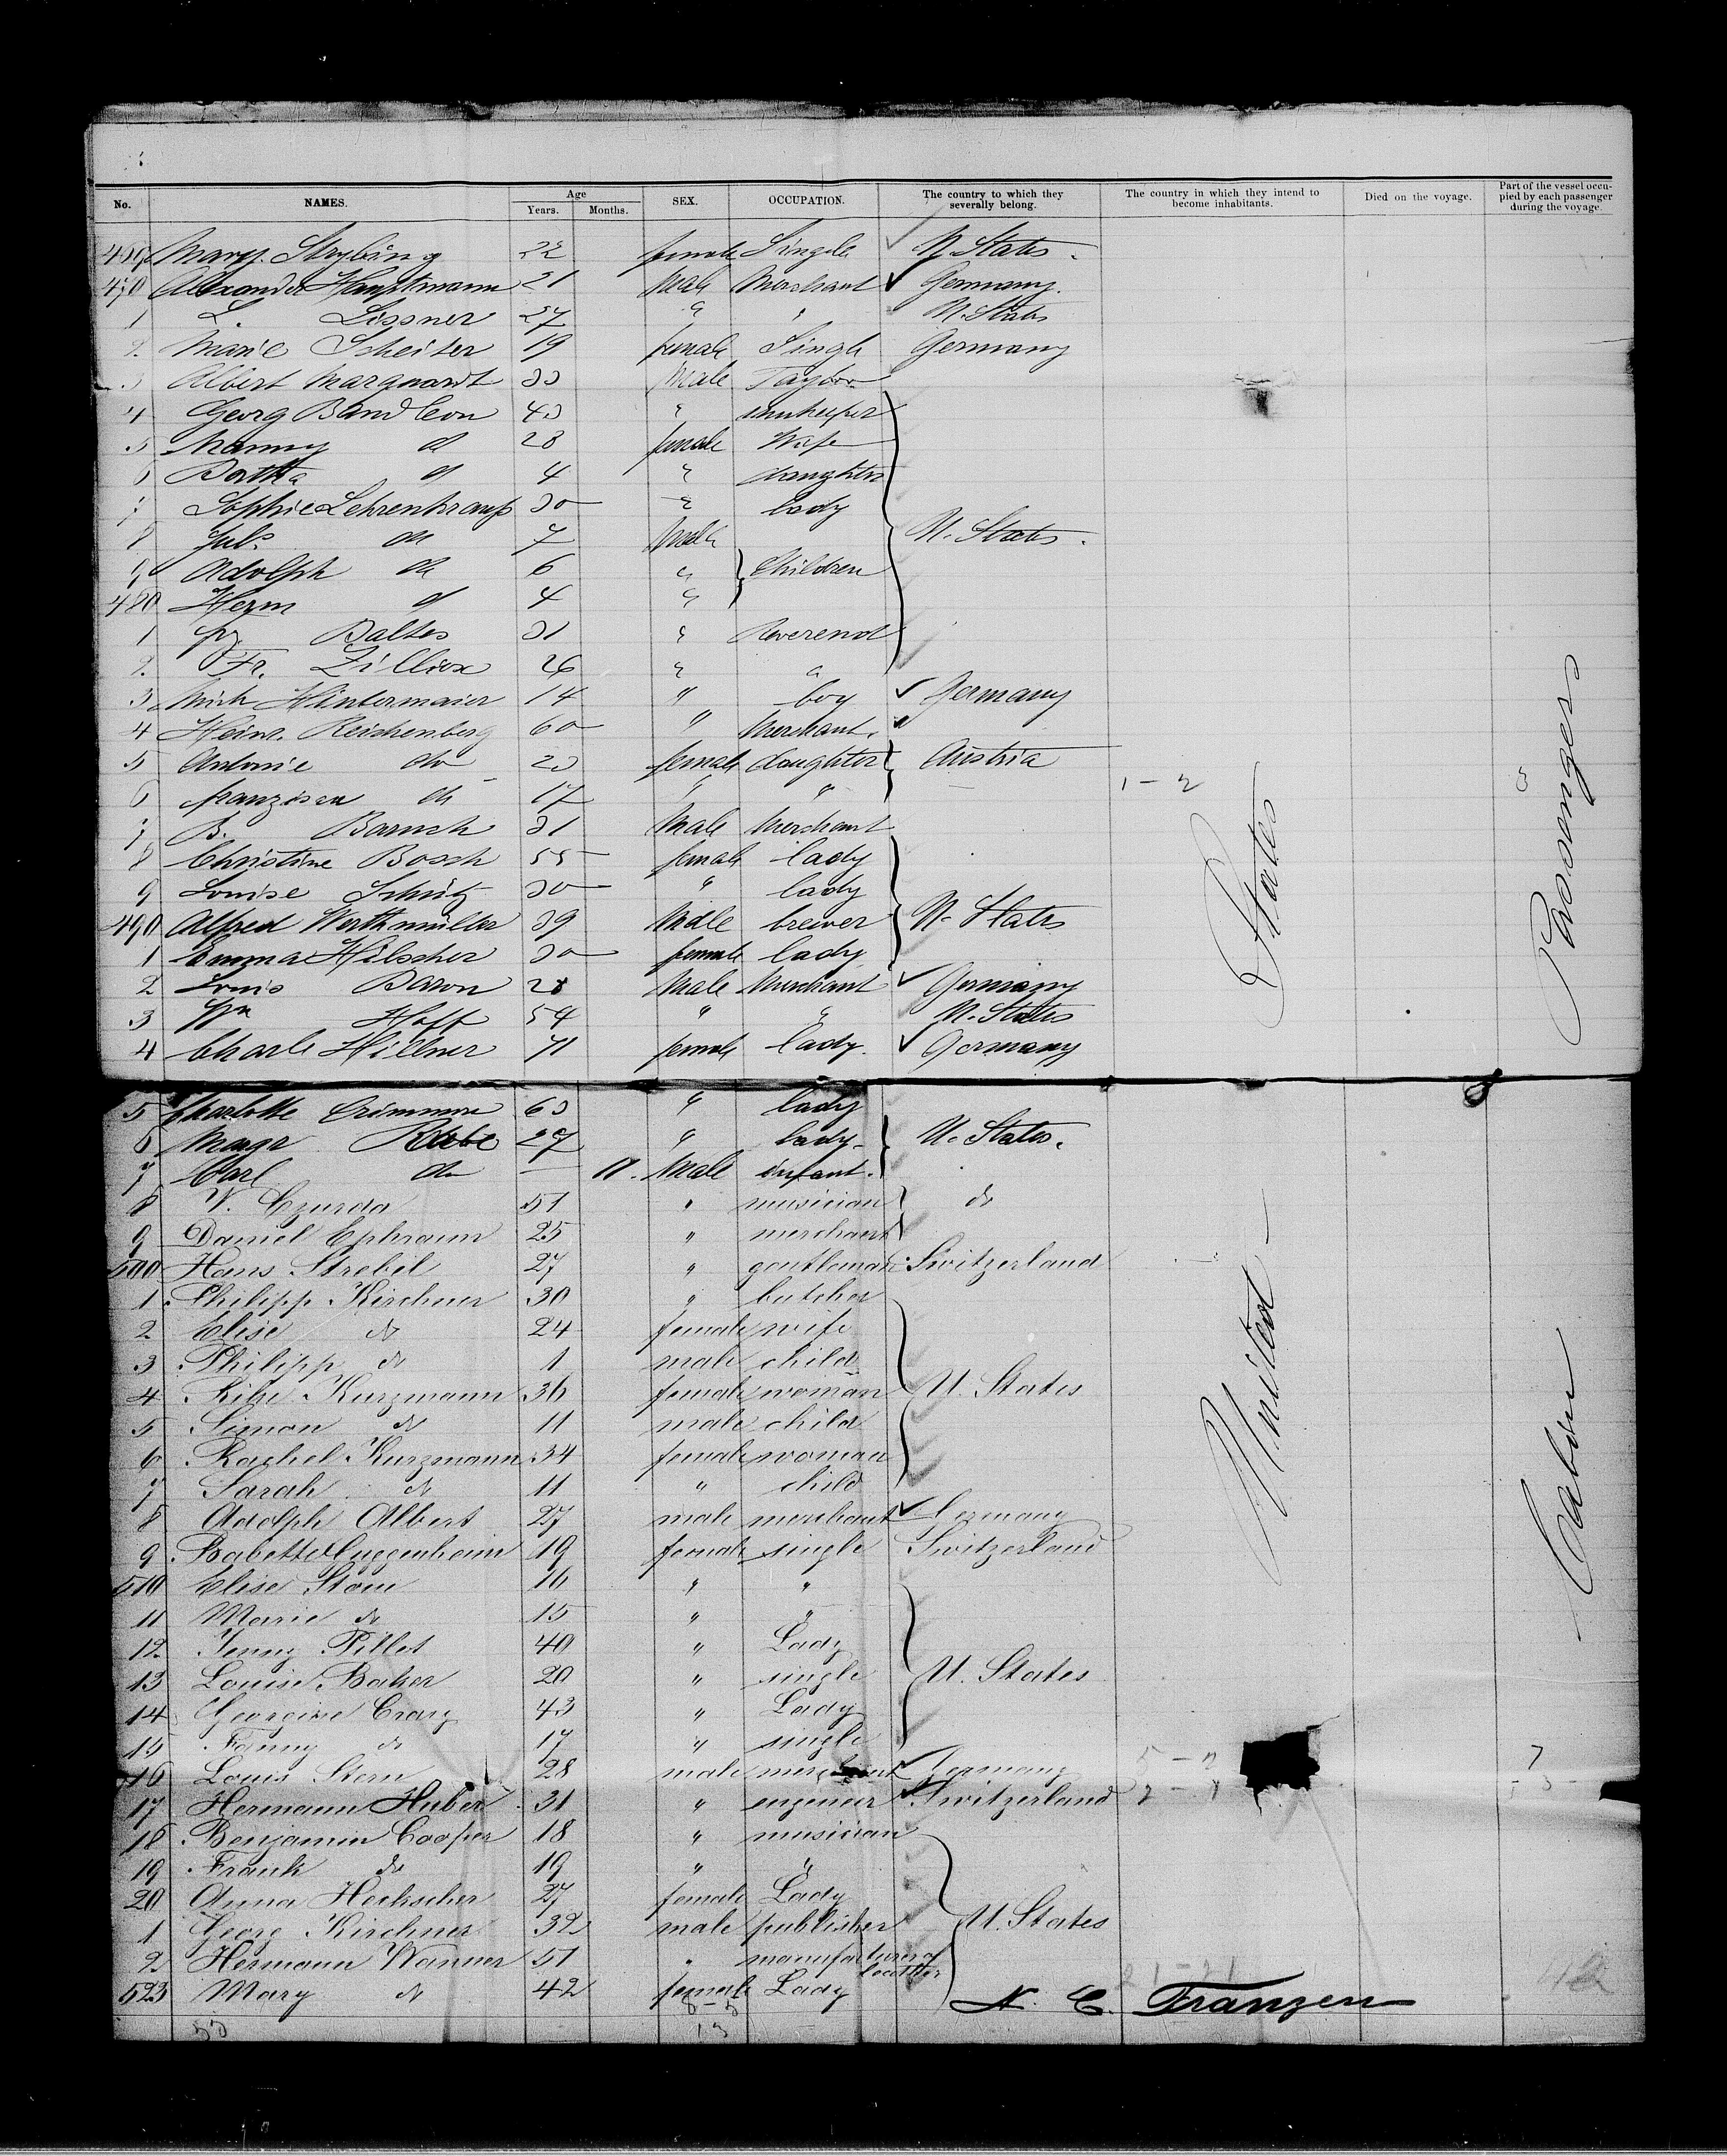 No. NAMES. Age Years. Months. SEX. OCCUPATION. The country to which they severally belong. The country in which they intend to become inhabitants. Died on the voyage. Part of the vessel occupied by each passenger during the voyage.
469 Mary Strybing 22 female Single U. States.
470 Alexander Hauptmann 21 Male Merchant Germany.
1 L. Lissner 27 " " U. States
2. Marie Scheiter 19 female Single Germany
3 Albert Marquardt 33 Male Taylor
4 Georg Bandleon 43 " innkeeper
5 Nanny do 28 female Wife
6 Bertha do 4 " daughter
7 Sophie Lehrenkrauss 30 " lady
8 Juls. do 7 Male U. States.
9 Adolph do 6 " Children
480 Herm do 4 "
1 Baltes 31 " Reverend
2. Fr. Zilliox 26 " "
3 Mich Hintermaier 14 " boy Germany
4 Heinr. Reichenberg 60 " Merchant.
5 Antonie do 23 female daughter Austria
6 Franziska do 17 " " 1-2 3
7 B. Baruch 31 Male Merchant
8 Christine Bosch 55 female lady
9 Louise Schütz 30 " lady
490 Alfred Werthmüller 39 Male brewer U. States
1 Emma Hilscher 30 female lady
2 Louis Baron 28 Male Merchant Germany
3 Wm Hoff 54 " " U. States
4 Charle Hillner 71 female lady. Germany
5 Charlotte 63 " lady
6 Rabe 27 " lady U. States.
7 Carl do — 11. Male infant.
8 V. Czurda 51 " musician do
9 Daniel Ephraim 25 " merchant
500 Hans Strebel 27 " gentleman Switzerland
1 Philipp Kirchner 30 " butcher
2 Elise do 24 female wife
3 Philipp do 1 male child
4 Rike Kurzmann 36 female woman U. States
5 Simon do 11 male child
6 Rachel Kurzmann 34 female woman
7 Sarah do 11 " child
8 Adolph Albert 27 male merchant Germany
9 Babette Guggenheim 19 female single Switzerland
510 Elise Stone 16 " "
11 Marie do 15 " "
12 Jenny Pillot 40 " Lady
13 Louise Baker 20 " single U. States
14 Georgine Crary 43 " Lady
15 Fanny do 17 " single
516 Louis Stern 28 male merchant Germany 7
17 Hermann Huber 31 " engineer Switzerland
18 Benjamin Cooper 18 " musician
19 Frank do 19 " "
20 Anna Heckscher 27 female Lady
1 Georg Kirchner 32 male publisher U. States
2 Hermann Wanner 51 " manufacturer of leather
523 Mary do 42 female Lady
N. C. Franzen
United States
Cabin Passengers